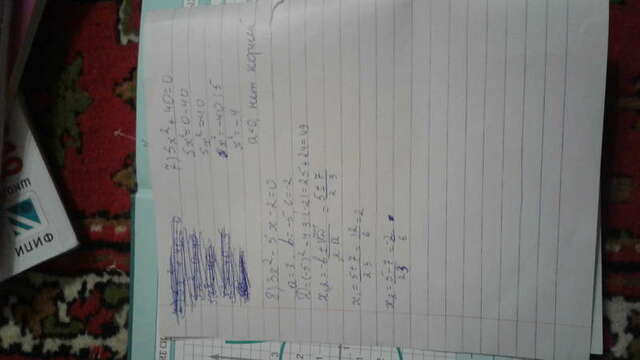 ФИПИ
ШКОЛЕ
7) 5x² + 40=0
5x²=0-40
5x²=-40
x²=-40:5
x²=-4
a<0, нет корней
8) 3x²- 5x-2=0
a=3 b=-5, c=-2
D=(-5)²-4·3·(-2)=25+24=49
x₁,₂=-b±√D/2a=5±7/2·3
x₁=5+7/2·3=12/6=2
x₂=5-7/2·3=-2/6